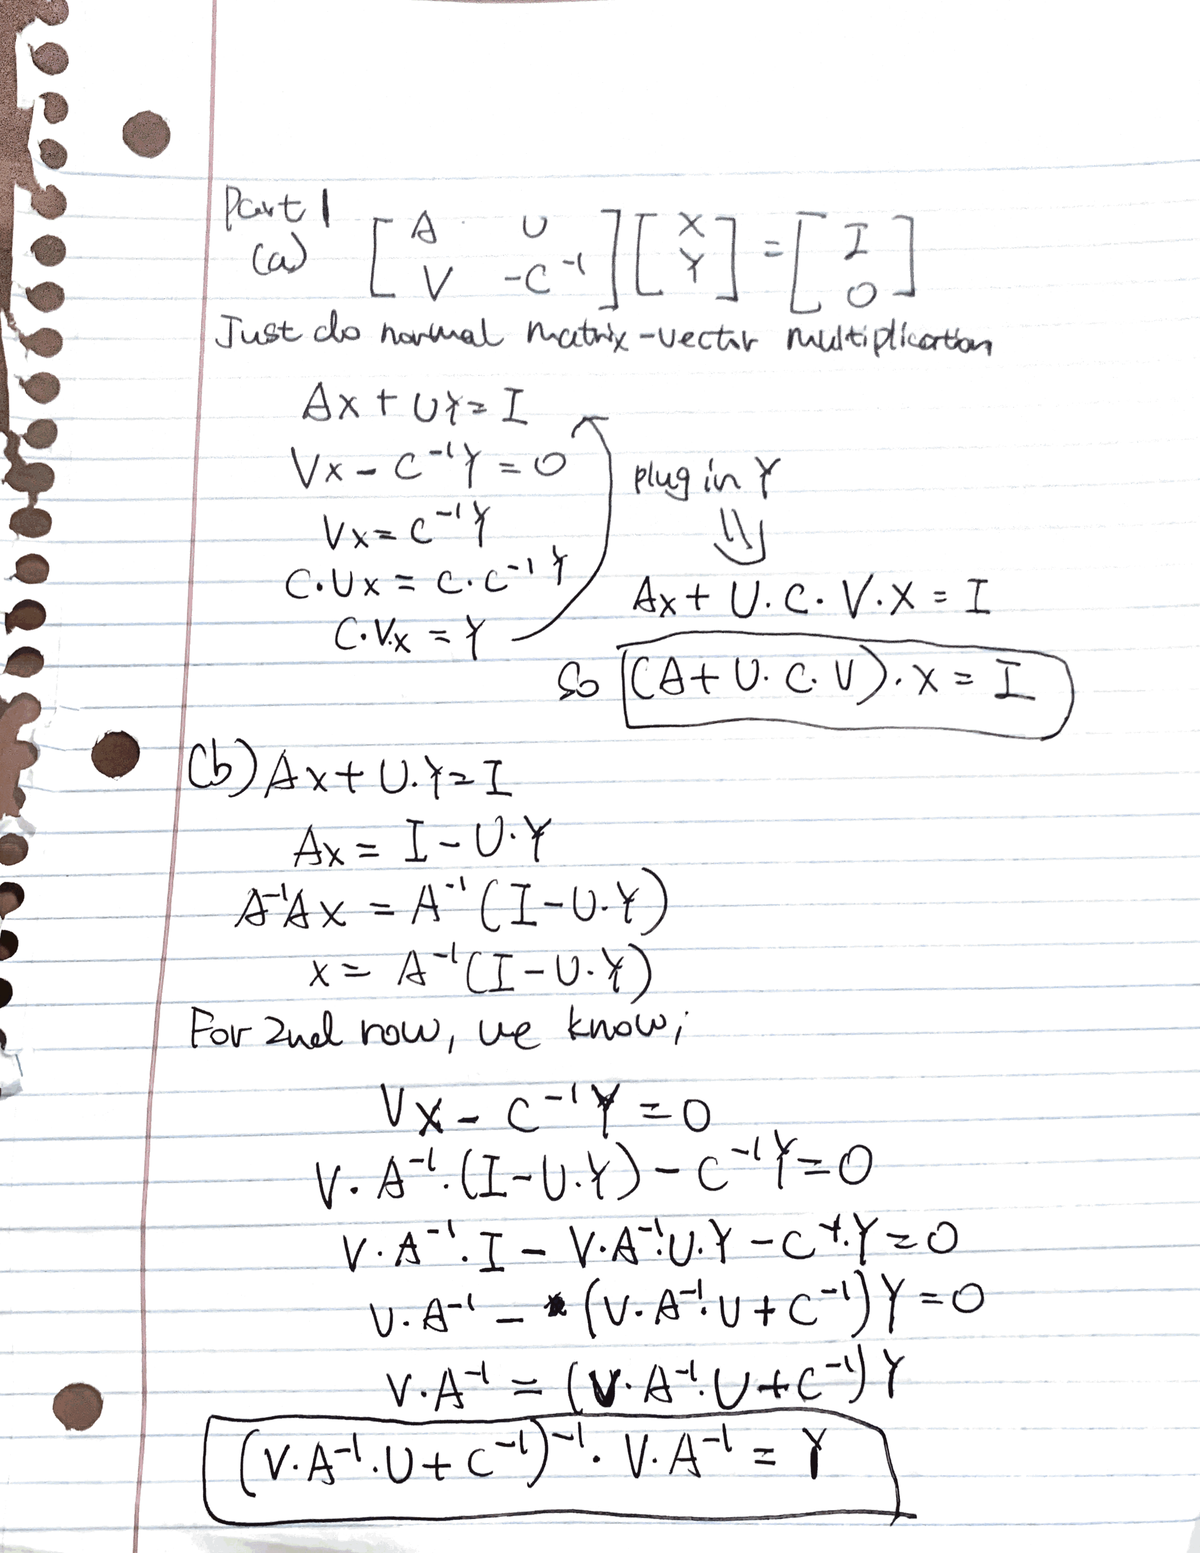 Part 1
(a) [A U; V -C⁻¹] [X; Y] = [I; O]
Just do normal matrix-vector multiplication
AX + UY = I
VX - C⁻¹Y = 0
plug in Y
VX = C⁻¹Y
⇓
C·UX = C·C⁻¹Y
AX + U·C·V·X = I
C·VX = Y
So (A + U·C·V)·X = I
(b) AX + U·Y = I
AX = I - U·Y
A⁻¹AX = A⁻¹(I - U·Y)
X = A⁻¹(I - U·Y)
For 2nd row, we know;
VX - C⁻¹Y = 0
V·A⁻¹·(I - U·Y) - C⁻¹Y = 0
V·A⁻¹·I - V·A⁻¹·U·Y - C⁻¹·Y = 0
V·A⁻¹ - (V·A⁻¹·U + C⁻¹)Y = 0
V·A⁻¹ = (V·A⁻¹·U + C⁻¹)Y
(V·A⁻¹·U + C⁻¹)⁻¹·V·A⁻¹ = Y